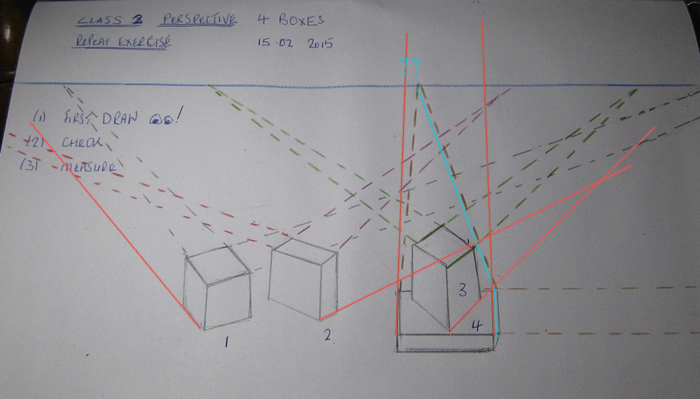 CLASS 2 PERSPECTIVE 4 BOXES
REPEAT EXERCISE 15.02 2015
(1) FIRST DRAW !
(2) CHECK
(3) MEASURE
1
2
3
4